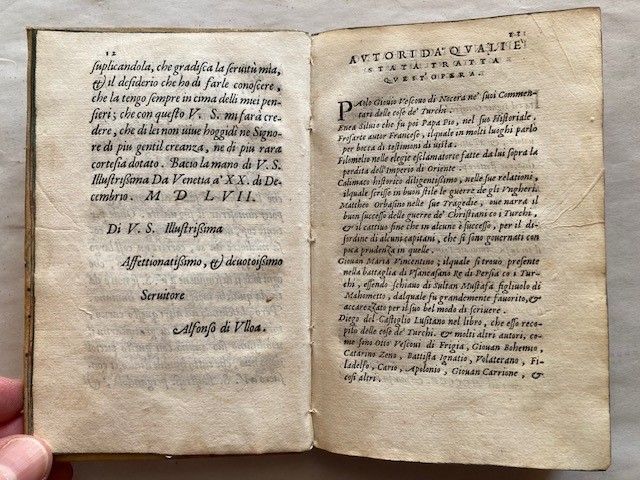 12
suplicandola, che gradisca la seruitù mia,
& il desiderio che ho di farle conoscere,
che la tengo sempre in cima delli miei pen-
sieri; che con questo V. S. mi farà cre-
dere, che di lei non uiue hoggidi ne Signore
di piu gentil creanza, ne di piu rara
cortesia dotato. Bacio la mano di V. S.
Illustrissima Da Venetia a' XX. di De-
cembrio. M D LVII.
Di V. S. Illustrissima
Affettionatissimo, & deuotoissimo
Seruitore
Alfonso di Vlloa.
AVTORI DA' QVALI E'
STATA TRATTA
QVEST' OPERA.
PAolo Giouio Vescouo di Nocera ne' suoi Commen-
tari delle cose de' Turchi.
Enea Siluio che fu poi Papa Pio, nel suo Historiale,
Frosarte autor Francese, ilquale in molti luoghi parlò
per bocca di testimoni di uista.
Filomelio nelle elegie esclamatorie fatte da lui sopra la
perdita dell'Imperio di Oriente.
Calimaco historico diligentissimo, nelle sue relationi,
ilquale scrisse in buon stile le guerre de gli Vngheri.
Mattheo Orbasino nelle sue Tragedie, oue narra il
buon successo delle guerre de' Christiani co i Turchi,
& il cattiuo fine che in alcune è successo, per il di-
sordine di alcuni capitani, che si sono gouernati con
pica prudenza in quelle.
Giouan Maria Vincentino; ilquale si trouò presente
nella battaglia di Vsancasano Re di Persia co i Tur-
chi, essendo schiauo di Sultan Mustafà figliuolo di
Mahometto, dalquale fu grandemente fauorito, &
accarezzato per il suo bel modo di scriuere.
Diego del Castiglio Lusitano nel libro, che esso reco-
pilò delle cose de' Turchi. & molti altri autori, co-
me sono Otto Vescoui di Frigia, Giouan Bohemio,
Catarino Zeno, Battista Ignatio, Volaterano, Fi-
ladelfo, Cario, Apolonio, Giouan Carrione, &
cosi altri.